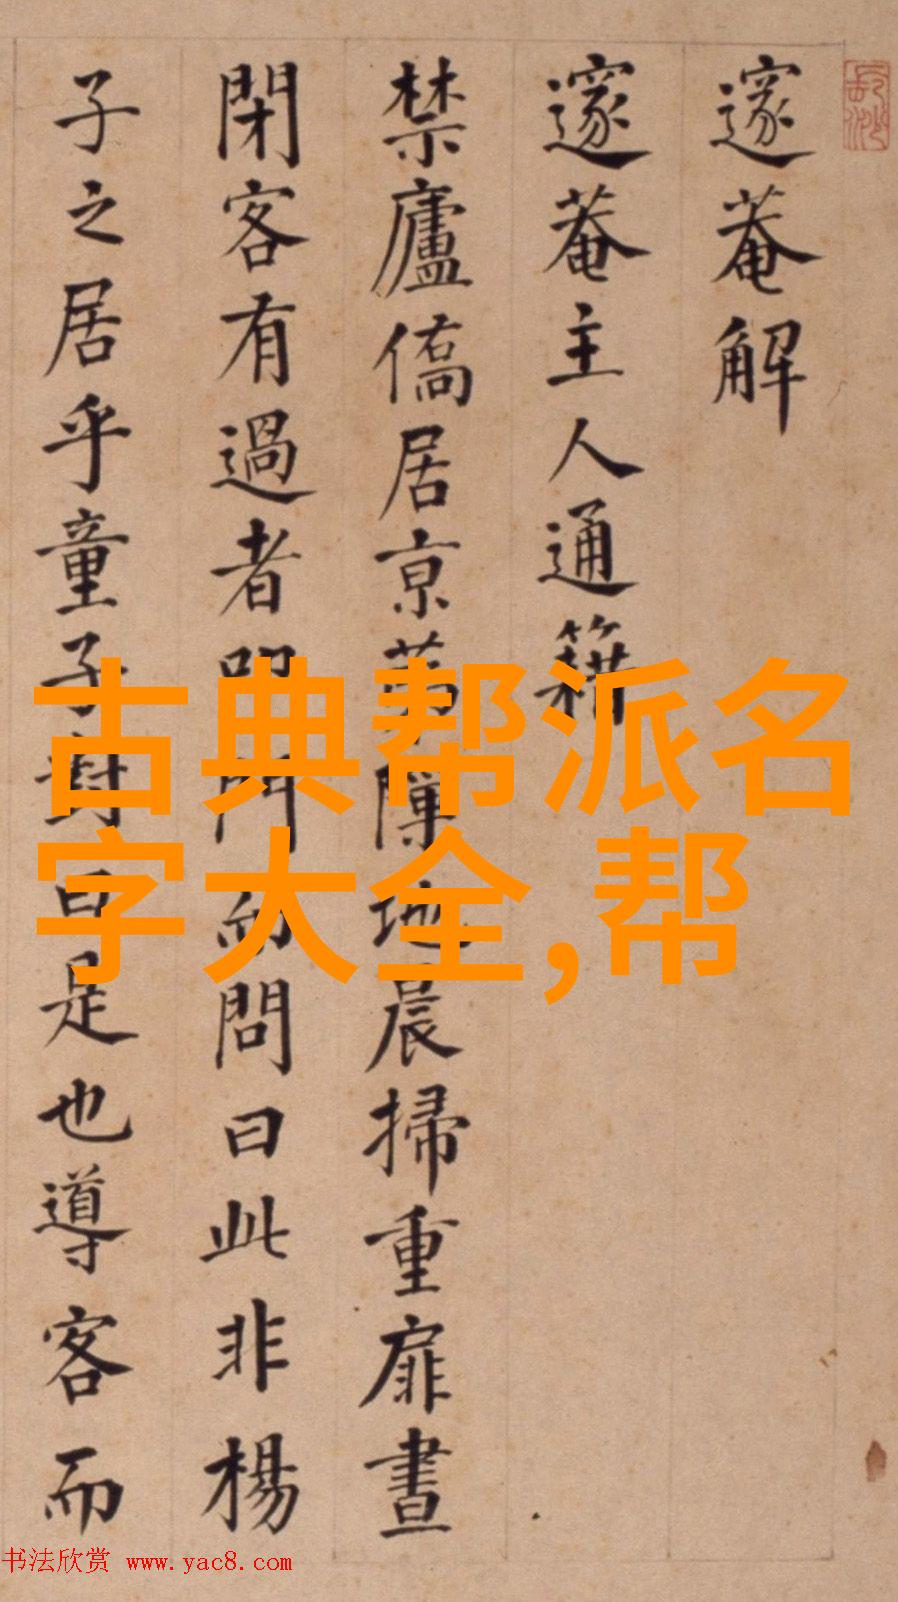 邃菴解
邃菴主人通籍
禁廬僑居京第陿地晨掃重扉晝
閉客有過者叩門而問曰此非楊
子之居乎童子對曰是也導客而
古典帮派名
字大全,帮
书法欣赏 www.yac8.com